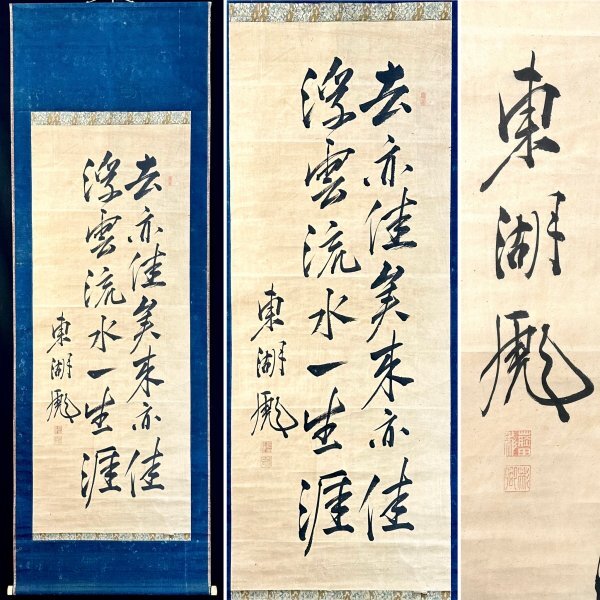 去亦佳矣来亦佳
浮雲流水一生涯
東湖彪
去亦佳矣来亦佳
浮雲流水一生涯
東湖彪
東湖彪